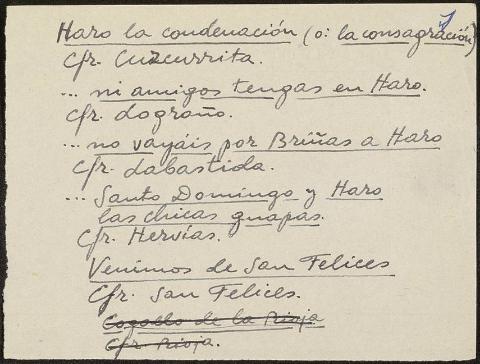 Haro la condenación (o: la consagración)
Cfr. Cuzcurrita.
... ni amigos tengas en Haro.
Cfr. Logroño.
... no vayáis por Briñas a Haro
Cfr. Labastida.
... Santo Domingo y Haro
las chicas guapas.
Cfr. Hervías.
Venimos de San Felices
Cfr. San Felices.
Cogollo de la Rioja
Cfr. Rioja.